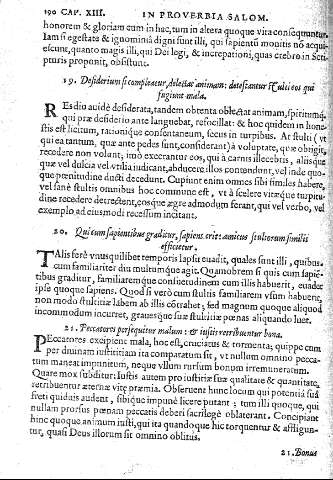 190 CAP. XIII. IN PROVERBIA SALOM.
honorem & gloriam eum in hoc, tum in altera quoque vita consequuntur.
lam si egestate & ignominia digni sunt illi, qui sapientũ monitis nõ acqui-
escunt, quanto magis illi, qui Dei legi, & increpationi, quas crebro in Scri-
pturis proponit, obsistunt.
19. Desiderium si compleatur, delectat animam: detestantur stulti eos qui
fugiunt mala.
REs diu auidè desiderata, tandem obtenta oblectat animam, spiritumq́.
qui præ desiderio ante languebat, refocillat: & hoc quidem in hone-
stis est licitum, rationique consentaneum, secus in turpibus. At stulti (vt
qui ea tantum, quæ ante pedes sunt, considerant) à voluptate, quæ obrigit,
recedere non volunt: imò execrantur eos, qui à carnis illecebris, aliisque
quæ vel dulcia vel vtilia iudicant, abducere illos contendunt, vel inde quo-
que pœnitudine ducti decedunt. Cupiunt enim omnes sibi similes habere,
vel sanè stultis omnibus hoc commune est, vt à scelere vitæque turpitu-
dine recedere detrectent, eosque ægre admodum ferant, qui vel verbo, vel
exemplo ad eiusmodi recessum incitant.
20. Qui cum sapientibus graditur, sapiens erit: amicus stultorum similis
efficietur.
TAlis ferè vnusquilibet temporis lapsu euadit, quales sunt illi, quibus-
cum familiariter diu multumque agit. Quamobrem si quis cum sapien-
tibus graditur, familiaremque consuetudinem cum illis habuerit, euadet
ipse quoque sapiens. Quod si verò cum stultis familiarem vsum habuerit,
non modo stultitiæ labem ab illis côtrahet; sed magnum quoque aliquod
incommodum incurret, grauesque suæ stultitiæ pœnas aliquando luet.
21. Peccatores persequitur malum: & iustis retribuentur bona.
PEccatores excipiene mala, hoc est, cruciatus & tormenta; quippe cum
per diuinam iustitiam ita comparatum sit, vt nullum omnino pecca-
tum maneat impunitum, neque vllum rursum bonum irremuneratum.
Quare mox subditur: Iustis autem pro iustitiæ suæ qualitate & quantitate,
retribuentur æternæ vitæ præmia. Obseruent hunc locum qui potentia sua
freti quiduis audent, sibique impunè licere putant; tum illi quoque, qui
nullam prorsus pœnam peccatis deberi sacrilegè oblaterant. Concipiant
hinc quoque animum iusti, qui ita quandoque hic torquentur & affligun-
tur, quasi Deus illorum sit omnino oblitus.
21. Bonus